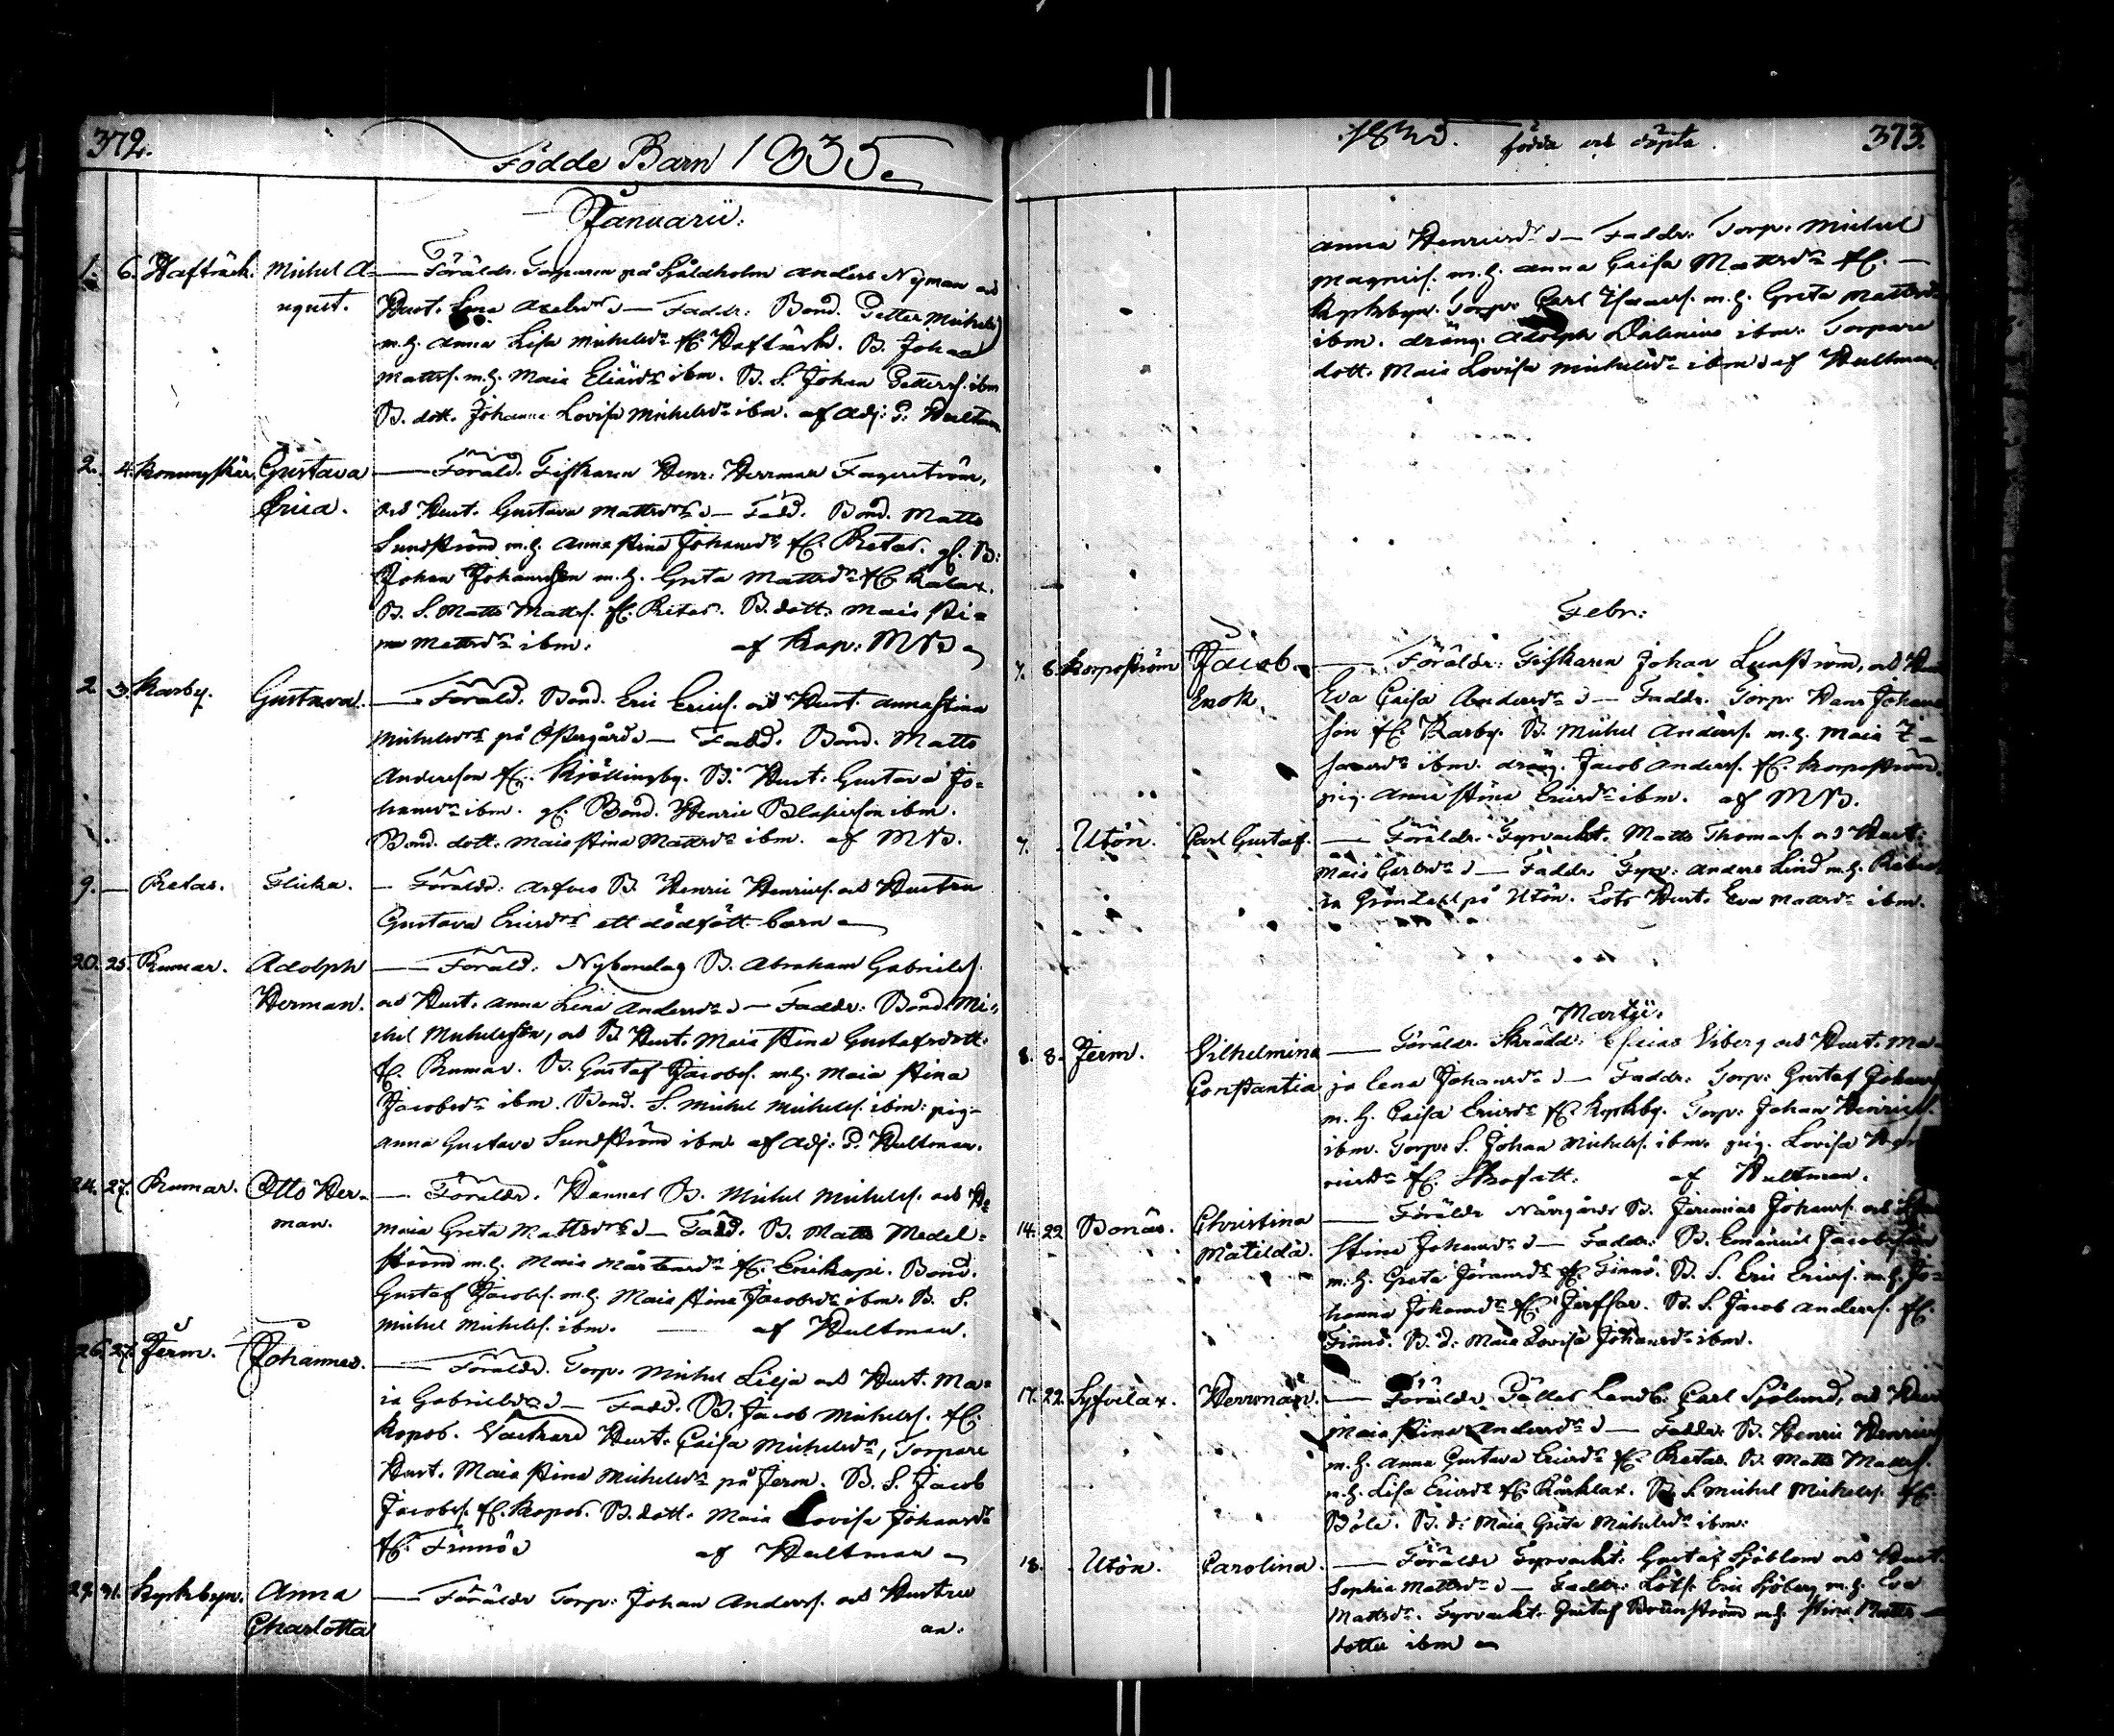 372.
Födde Barn 1835.
Januarii:
1. 6. Hafträsk. Michel A- Föräldr. Torparen på Sjåldholm Anders Nyman och
ugust. Hust. Lena Axelsdr — Faddr: Bond. Petter Michels.
m.h. Anna Lisa Michelsdr fr. Hafträsk. B. Johan
Matts. m.h. Maia Eliædr ibm. B. S. Johan Petters. ibm
B. dott. Johanna Lovisa Michelsdr ibm. af Adj: P: Hultman
2. 4. Konungskär. Gustava — Föräld. Fiskaren Henr: Herrman Fagerström,
Erica. och Hust. Gustava Mattsdr — Fadd. Bond. Matts
Sundström m.h. Anna Stina Johansdr fr. Retas. gl. B:
Johan Johansson m.h. Greta Mattsdr fr. Kalax.
B. S. Matts Matts. fr. Retas. B. dott. Maia Sti-
na Mattsdr ibm. af Kap: M B
2. 3. Karby. Gustava. — Föräld. Bond. Eric Erics. och Hust. Anna Stina
Michelsdr på Östergård — Fadd. Bond. Matts
Andersson fr. Kjällingby. B. Hust. Gustava Jo-
hansdr ibm. gl. Bond. Henric ibm.
Bond. dott. Maia Stina Mattsdr ibm. af M B.
9. — Retas. Flicka. — Föräldr: B. Henric Henrics. och Hustru
Gustava Ericsdr ett dödfött barn
20. 25. Rumar. Adolph — Föräld: Nybondas B. Abraham Gabriels.
Herman. och Hust. Anna Lena Andersdr — Faddr: Bond. Mi-
chel Michelsson, och B Hust. Maia Stina Gustafsdott.
fr. Rumar. B. Gustaf Jacobs. m.h. Maia Stina
Jacobsdr ibm. Bond. S. Michel Michels. ibm. pig-
Anna Gustava Sundström ibm. af Adj: P. Hultman.
24. 27. Rumar. Otto Her- — Föräldr. Hannas B. Michel Michels. och H:
man. Maia Greta Mattsdr — Fadd. B. Matts Medel-
ström m.h. Maia Mårtensdr fr. Bond.
Gustaf Jacobs. m.h. Maia Stina Jacobsdr ibm. B. S.
Michel Michels. ibm. — af Hultman.
26. 27. Jerm. Johannes. — Föräldr. Torp. Michel Lilja och Hust. Ma-
ia Gabrielsdr — Fadd. B. Jacob Michels. fr.
Kopos. Hust. Caisa Michelsdr, Torpare
Hust. Maia Stina Michelsdr på Jerm. B. S. Jacob
Jacobs. fr. Kopos. B. dott. Maia Lovisa Johansdr
fr. Finnö af Hultman
29. 31. Kyrkbyn. Anna — Föräldr Torp: Johan Anders. och Hustru
Charlotta an:
1835. födda och döpta. 373.
Anna Henricsdr — Faddr: Torp. Michel
Magnus. m.h. Anna Caisa Mattsdr fr. —
Kyrkbyn. Torp. Carl Isaacs. m.h. Greta Mattsdr
ibm. dräng. Adolph Dalenius ibm. Torpare
dott. Maia Lovisa Michelsdr ibm af Hultman.
Febr:
7. 8. Korpoström Jacob — Föräldr: Fiskaren Johan Lunström, och Hu
Enok. Eva Caisa Andersdr — Faddr. Torp: Hans Johans
son fr. Karby. B. Michel Anders. m.h. Maia I-
sacsdr ibm. dräng. Jacob Anders. fr. Korpoström.
pig. Anna Stina Ericsdr ibm. af M B.
7. . Utön. Carl Gustaf. — Föräldr. Fyrvackt. Matts Thomas. och Hust:
Maia Carlsdr — Faddr. Fyrv: Anders Lind m.h.
Gröndahl på Utön. Lots Hust. Eva Mattsdr ibm.
Martii.
8. 8. Jerm. Vilhelmina — Föräldr. Skrädd: Esaias Viberg och Hust. Ma-
Constantia ja Lena Johansdr — Faddr: Torp: Gustaf Johans
m.h. Caisa Ericsdr fr. Kyrkby. Torp: Johan Henrics.
ibm. Torp: S. Johan Michels. ibm. pig. Lovisa Hen
ricsdr fr. Skrofatt. af Hultman.
14. 22 Bonäs. Christina — Föräldr B. Jeremias Johans. och
Matilda. Stina Johansdr — Faddr: B. Emanuel Jacobsson
m.h. Greta Göransdr fr. Finnö. B. S. Eric Erics. m.h. Jo-
hanna Johansdr fr. Jerssar. B. S. Jacob Anders. fr.
Finnö. B. d: Maia Lovisa Johansdr ibm.
17. 22. Syfvilax. Herrman. — Föräldr Landb: Carl Sjölund, och Hu
Maia Stina Andersdr — Faddr: B. Henric Henrics
m.h. Anna Gustava Ericsdr fr. Retas. B. Matts Matts.
m.h. Lisa Ericsdr fr. Kårklax. B. S. Michel Michels. fr.
Böle. B. d: Maia Greta Michelsdr ibm.
18. . Utön. Carolina. — Föräldr Fyrvackt: Gustaf Sjöblom och Hust.
Sophia Mattsdr — Faddr: Lots. Eric Sjöberg m.h. Eva
Mattsdr. Fyrvackt. Gustaf Brunström m.h. Stina Matts-
dotter ibm